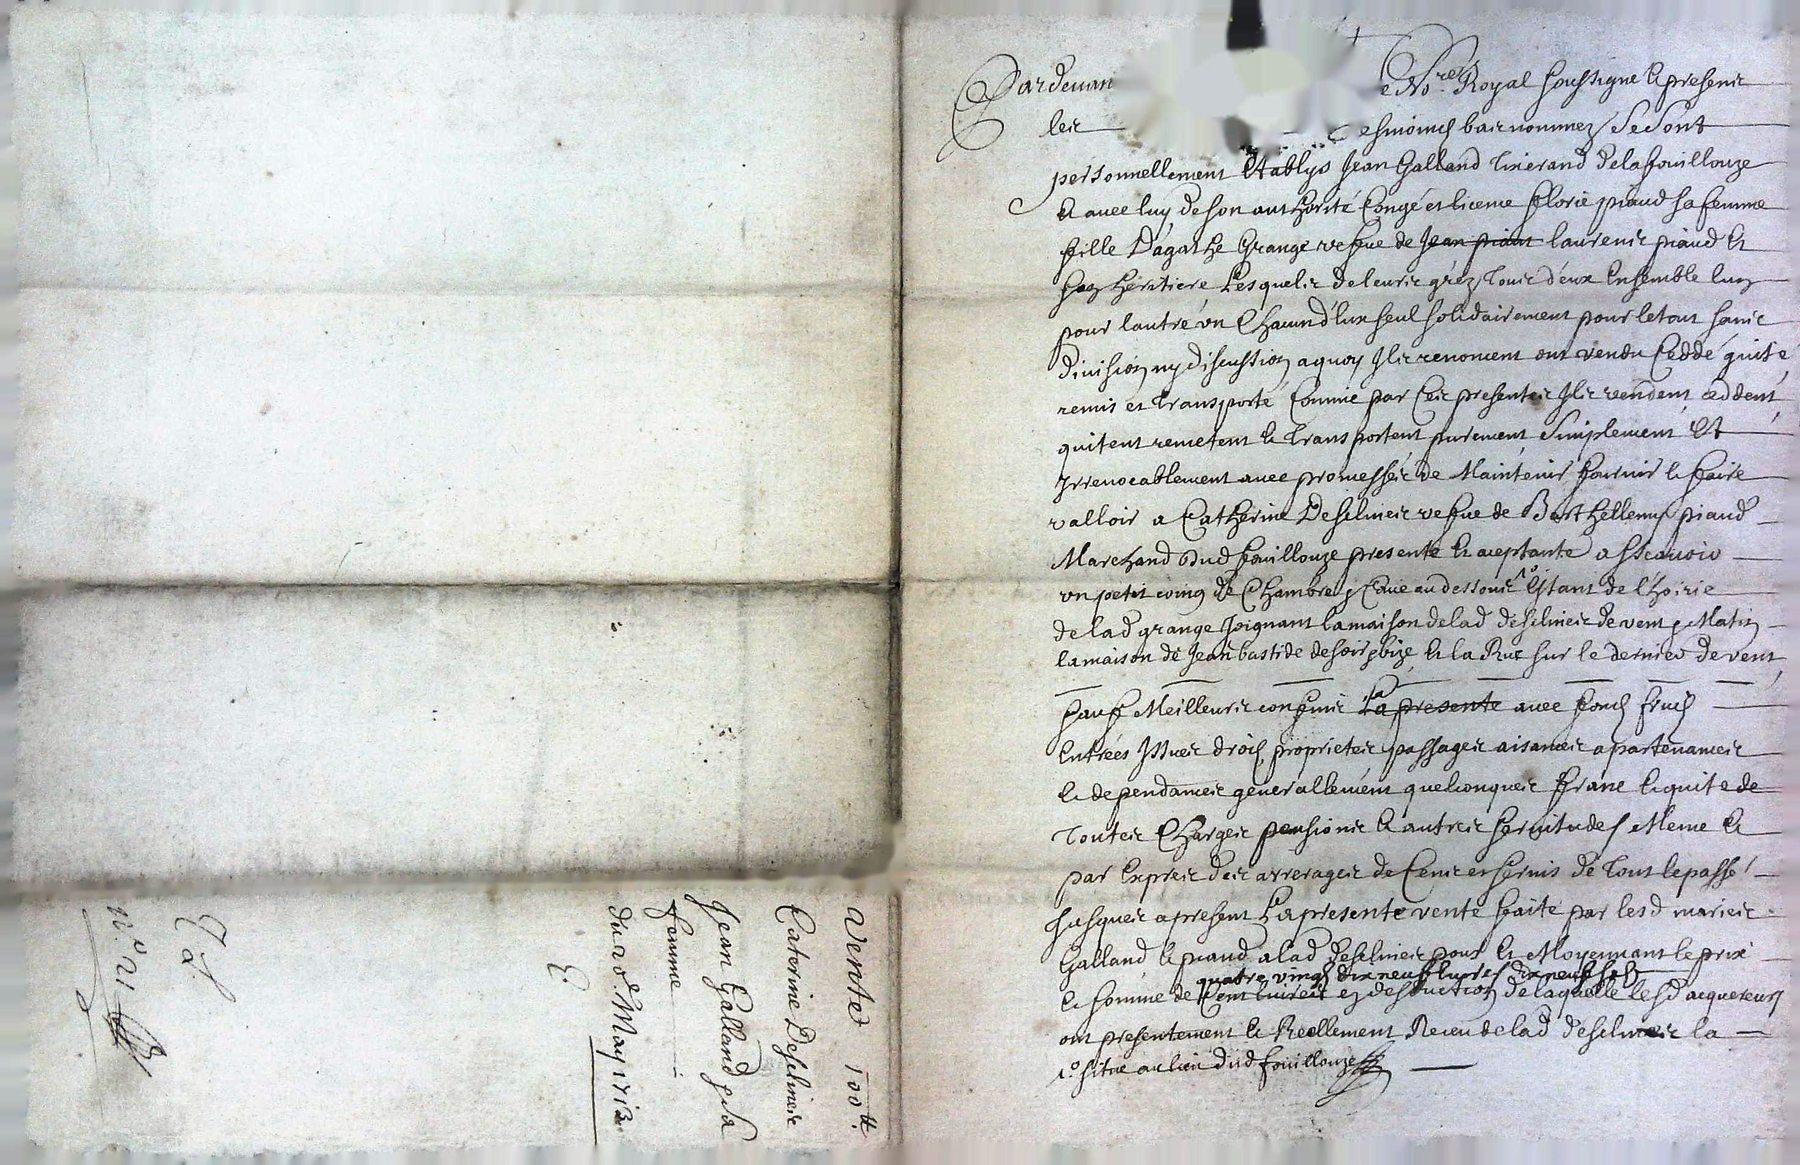 Pardevan e No.re Royal soussigne & presentz
les esmoins bas nommez se sont
personnellement Etablys Jean Galland Tixerand de la fouillouze
& avec luy de son authorité Congé et licence florie piaud sa femme
fille Dagathe Grange vefue de Jean piaut laurens piaud &
son héritiere Lesquels de leurs grèz Tous d'eux Ensemble lun
pour lautre un Chacun d'eux seul solidairement pour le tout sans
diuision ny discussion a quoy Ils renoncent ont vendu Ceddé quité
remis et Transporté Comme par Ces presentes Ils vendent ceddent
quitent remetent & Transportent purement Simplement Et
Irreuocablement auec promesses de Maintenir fournir & faire
valloir a Catherine Deschineis vefue de Barthellemy piaud
Marchand dud fouillouze presente & aceptante a sscauoir
vn petit coing de Chambre & Caue au dessous estant de l'hoirie
de lad grange Joignant la maison de lad deschineis de vent & Matin
la maison de Jean bastide de soir & bize & la Rue sur le dernier de vent
sauf Meilleurs confins La presente auec fonds fruits
Entrées Issues droits proprietes passages aisances apartenances
& dependances generallement quelconques franc & quite de
Toutes Charges pensions & autres seruitudes Meme &
par Expres des arrerages de Cens et seruis de Tout le passé
Jusques a present La presente vente faite par lesd maries
Galland & piaud a lad deschineis pour & Moyennant le prix
quatre vingts dix neuf liures dix neuf sols
& somme de Cent liures en desduction de laquelle lesd acquereurs
ont presentement & Reellement Receu de lad deschineis la
situé au lieu dud fouillouze
Vente 100tt
Caterine Deschineis
Jean Galland & sa
femme
du 20e May 1713
n.o 21